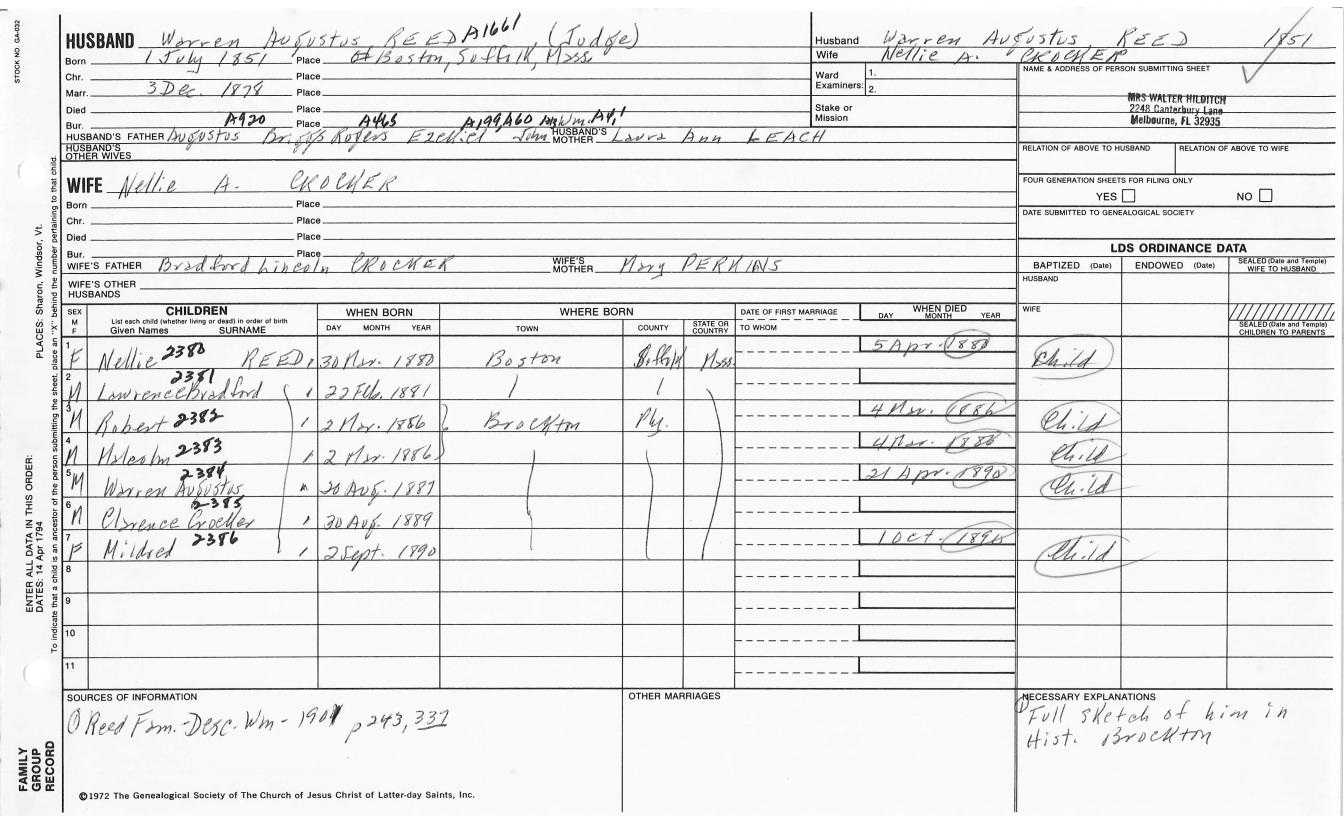 STOCK NO. GA-032
PLACES: Sharon, Windsor, Vt.
ENTER ALL DATA IN THIS ORDER:
DATES: 14 Apr 1794
To indicate that a child is an ancestor of the person submitting the sheet, place an "X" behind the number pertaining to that child.
FAMILY
GROUP
RECORD
HUSBAND Warren Augustus REED A1661 (Judge)
Born 1 July 1851 Place Of Boston, Suffolk, Mass
Chr. Place
Marr. 3 Dec. 1878 Place
Died Place
Bur. A920 Place A465 A199, A60 Wm. A4,1
HUSBAND'S FATHER Augustus Briggs Rogers Ezekiel John HUSBAND'S MOTHER Laura Ann LEACH
HUSBAND'S OTHER WIVES
WIFE Nellie A. CROCKER
Born Place
Chr. Place
Died Place
Bur. Place
WIFE'S FATHER Bradford Lincoln CROCKER WIFE'S MOTHER Mary PERKINS
WIFE'S OTHER HUSBANDS
Husband Warren Augustus REED 1851
Wife Nellie A. CROCKER
Ward Examiners: 1. 2.
Stake or Mission
NAME & ADDRESS OF PERSON SUBMITTING SHEET
MRS WALTER HILDITCH
2248 Canterbury Lane
Melbourne, FL 32935
RELATION OF ABOVE TO HUSBAND RELATION OF ABOVE TO WIFE
FOUR GENERATION SHEETS FOR FILING ONLY
YES NO
DATE SUBMITTED TO GENEALOGICAL SOCIETY
LDS ORDINANCE DATA
BAPTIZED (Date) ENDOWED (Date) SEALED (Date and Temple) WIFE TO HUSBAND
HUSBAND
WIFE
SEALED (Date and Temple) CHILDREN TO PARENTS
SEX M F CHILDREN WHEN BORN WHERE BORN DATE OF FIRST MARRIAGE WHEN DIED
List each child (whether living or dead) in order of birth
Given Names SURNAME DAY MONTH YEAR TOWN COUNTY STATE OR COUNTRY TO WHOM DAY MONTH YEAR
1 F Nellie 2380 REED, 30 Mar. 1880 Boston Suffolk Mass 5 Apr. 1880 Child
2 M Lawrence Bradford 2381 22 Feb. 1881
3 M Robert 2382 2 Mar. 1886 Brockton Ply. 4 Mar. 1886 Child
4 M Malcolm 2383 2 Mar. 1886 4 Mar. 1886 Child
5 M Warren Augustus 2384 20 Aug. 1887 21 Apr. 1890 Child
6 M Clarence Crocker 2385 30 Aug. 1889
7 F Mildred 2386 2 Sept. 1890 1 Oct. Child
8
9
10
11
SOURCES OF INFORMATION
① Reed Fam.-Desc. Wm - 1901 p243, 337
OTHER MARRIAGES
NECESSARY EXPLANATIONS
① Full sketch of him in
Hist. Brockton
©1972 The Genealogical Society of The Church of Jesus Christ of Latter-day Saints, Inc.